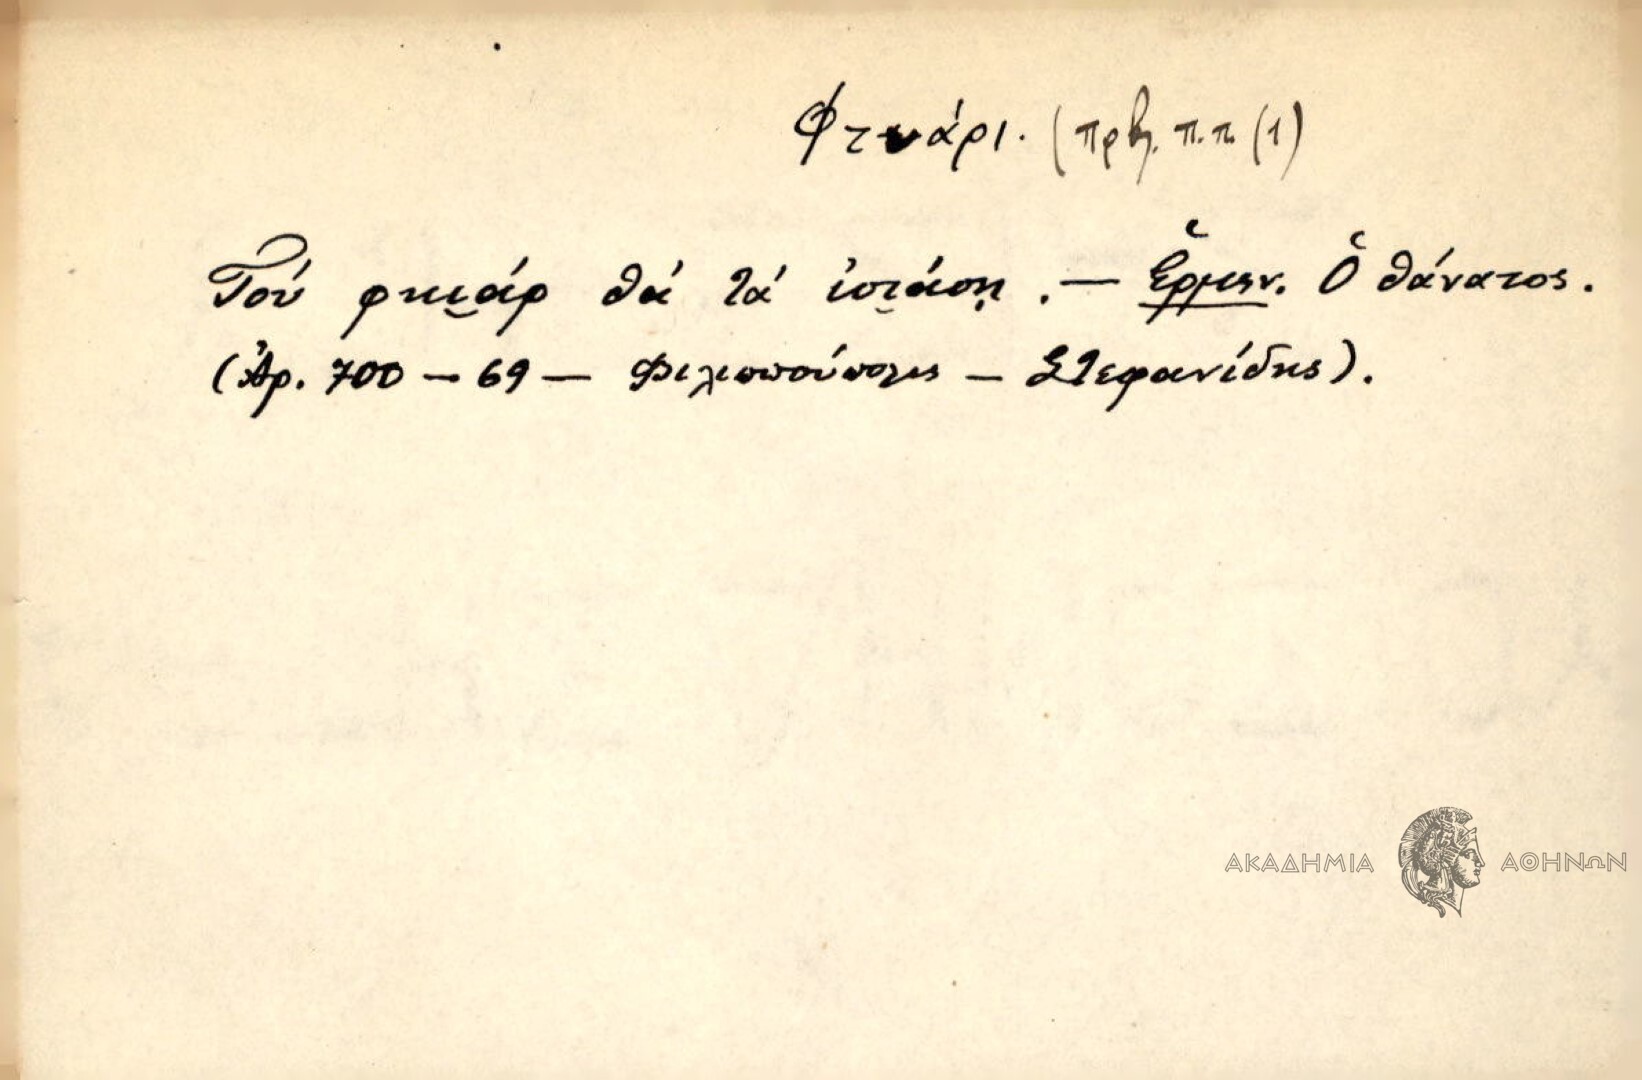 Φτυάρι. (πρβλ. π.π. (1)
Τού φκιάρ θά τά ἰσιάσῃ. — Ἑρμην. Ὁ θάνατος.
(Ἀρ. 700 — 69 — Φιλιππούπολις — Στεφανίδης).
ΑΚΑΔΗΜΙΑ ΑΘΗΝΩΝ